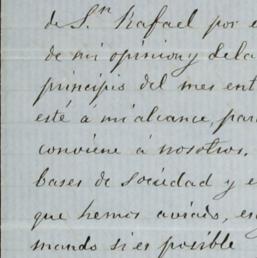 de S.n Rafael por e
de mi opinion y de la
principio del mes ent
esté a mi alcance, par
conviene á nosotros.
bases de sociedad y e
que hemos aviado, es
mando si es posible